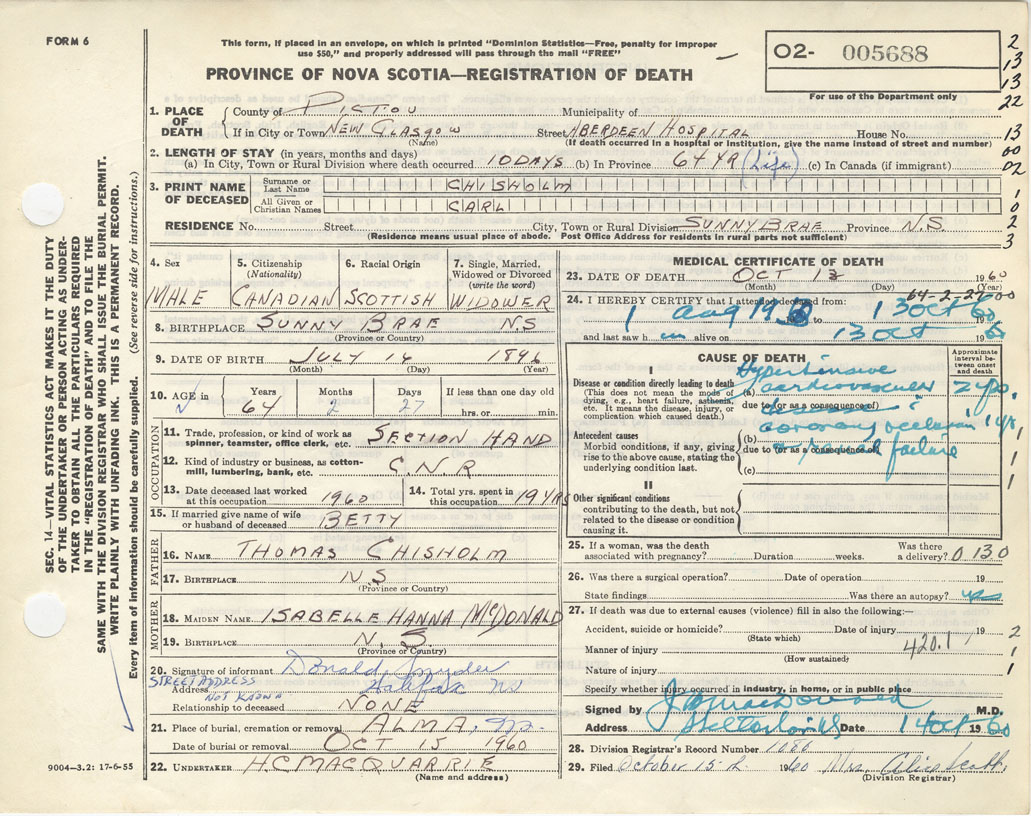 FORM 6
This form, if placed in an envelope, on which is printed "Dominion Statistics—Free, penalty for improper
use $50," and properly addressed will pass through the mail "FREE"
PROVINCE OF NOVA SCOTIA—REGISTRATION OF DEATH
O2- 005688
For use of the Department only
2
13
13
22
13
00
02
1
0
2
3
SEC. 14—VITAL STATISTICS ACT MAKES IT THE DUTY
OF THE UNDERTAKER OR PERSON ACTING AS UNDER-
TAKER TO OBTAIN ALL THE PARTICULARS REQUIRED
IN THE "REGISTRATION OF DEATH" AND TO FILE THE
SAME WITH THE DIVISION REGISTRAR WHO SHALL ISSUE THE BURIAL PERMIT.
WRITE PLAINLY WITH UNFADING INK. THIS IS A PERMANENT RECORD.
Every item of information should be carefully supplied. (See reverse side for instructions.)
1. PLACE OF DEATH
County of PICTOU Municipality of
If in City or Town NEW GLASGOW Street ABERDEEN HOSPITAL House No.
(Name) (If death occurred in a hospital or institution, give the name instead of street and number)
2. LENGTH OF STAY (in years, months and days)
(a) In City, Town or Rural Division where death occurred 10 DAYS (b) In Province 64 YR (Life) (c) In Canada (if immigrant)
3. PRINT NAME OF DECEASED
Surname or Last Name CHISHOLM
All Given or Christian Names CARL
RESIDENCE No. Street City, Town or Rural Division SUNNY BRAE Province N.S.
(Residence means usual place of abode. Post Office Address for residents in rural parts not sufficient)
4. Sex 5. Citizenship (Nationality) 6. Racial Origin 7. Single, Married, Widowed or Divorced (write the word)
MALE CANADIAN SCOTTISH WIDOWER
8. BIRTHPLACE SUNNY BRAE N.S
(Province or Country)
9. DATE OF BIRTH JULY 16 1896
(Month) (Day) (Year)
10. AGE in Years Months Days If less than one day old
64 2 27 hrs. or min.
OCCUPATION
11. Trade, profession, or kind of work as spinner, teamster, office clerk, etc. SECTION HAND
12. Kind of industry or business, as cotton-mill, lumbering, bank, etc. C.N.R
13. Date deceased last worked at this occupation 1960
14. Total yrs. spent in this occupation 19 YARS
15. If married give name of wife or husband of deceased BETTY
FATHER
16. NAME THOMAS CHISHOLM
17. BIRTHPLACE N.S
(Province or Country)
MOTHER
18. MAIDEN NAME ISABELLE HANNA McDONALD
19. BIRTHPLACE N.S
(Province or Country)
20. Signature of informant Donald Snyder
STREET ADDRESS NOT KNOWN
Address Halifax NS
Relationship to deceased NONE
21. Place of burial, cremation or removal ALMA, N.S.
Date of burial or removal OCT 15 1960
22. UNDERTAKER H.C. MACQUARRIE
(Name and address)
9004—3.2: 17-6-55
MEDICAL CERTIFICATE OF DEATH
23. DATE OF DEATH OCT 13 1960
(Month) (Day) (Year)
64-2-27 00
24. I HEREBY CERTIFY that I attended deceased from:
1 Aug 1960 to 13 Oct 1960
and last saw him alive on 13 Oct 1960
CAUSE OF DEATH
Approximate interval between onset and death
I
Disease or condition directly leading to death
(This does not mean the mode of dying, e.g., heart failure, asthenia, etc. It means the disease, injury, or complication which caused death.)
(a) Hypertensive cardiovascular 2 yrs.
due to (or as a consequence of)
Antecedent causes
Morbid conditions, if any, giving rise to the above cause, stating the underlying condition last.
(b) coronary occlusion 1 yr
due to (or as a consequence of) failure
(c)
1
1
1
II
Other significant conditions
contributing to the death, but not related to the disease or condition causing it.
25. If a woman, was the death associated with pregnancy? Duration weeks. Was there a delivery? 0 130
26. Was there a surgical operation? Date of operation 19
State findings Was there an autopsy?
27. If death was due to external causes (violence) fill in also the following:—
Accident, suicide or homicide? Date of injury 19 2
(State which)
Manner of injury 420.1 1
(How sustained)
Nature of injury 1
Specify whether injury occurred in industry, in home, or in public place
Signed by M.D.
Address Date 14 Oct 1960
28. Division Registrar's Record Number 1086
29. Filed October 15 1960 Mrs. Alice Scott
(Division Registrar)